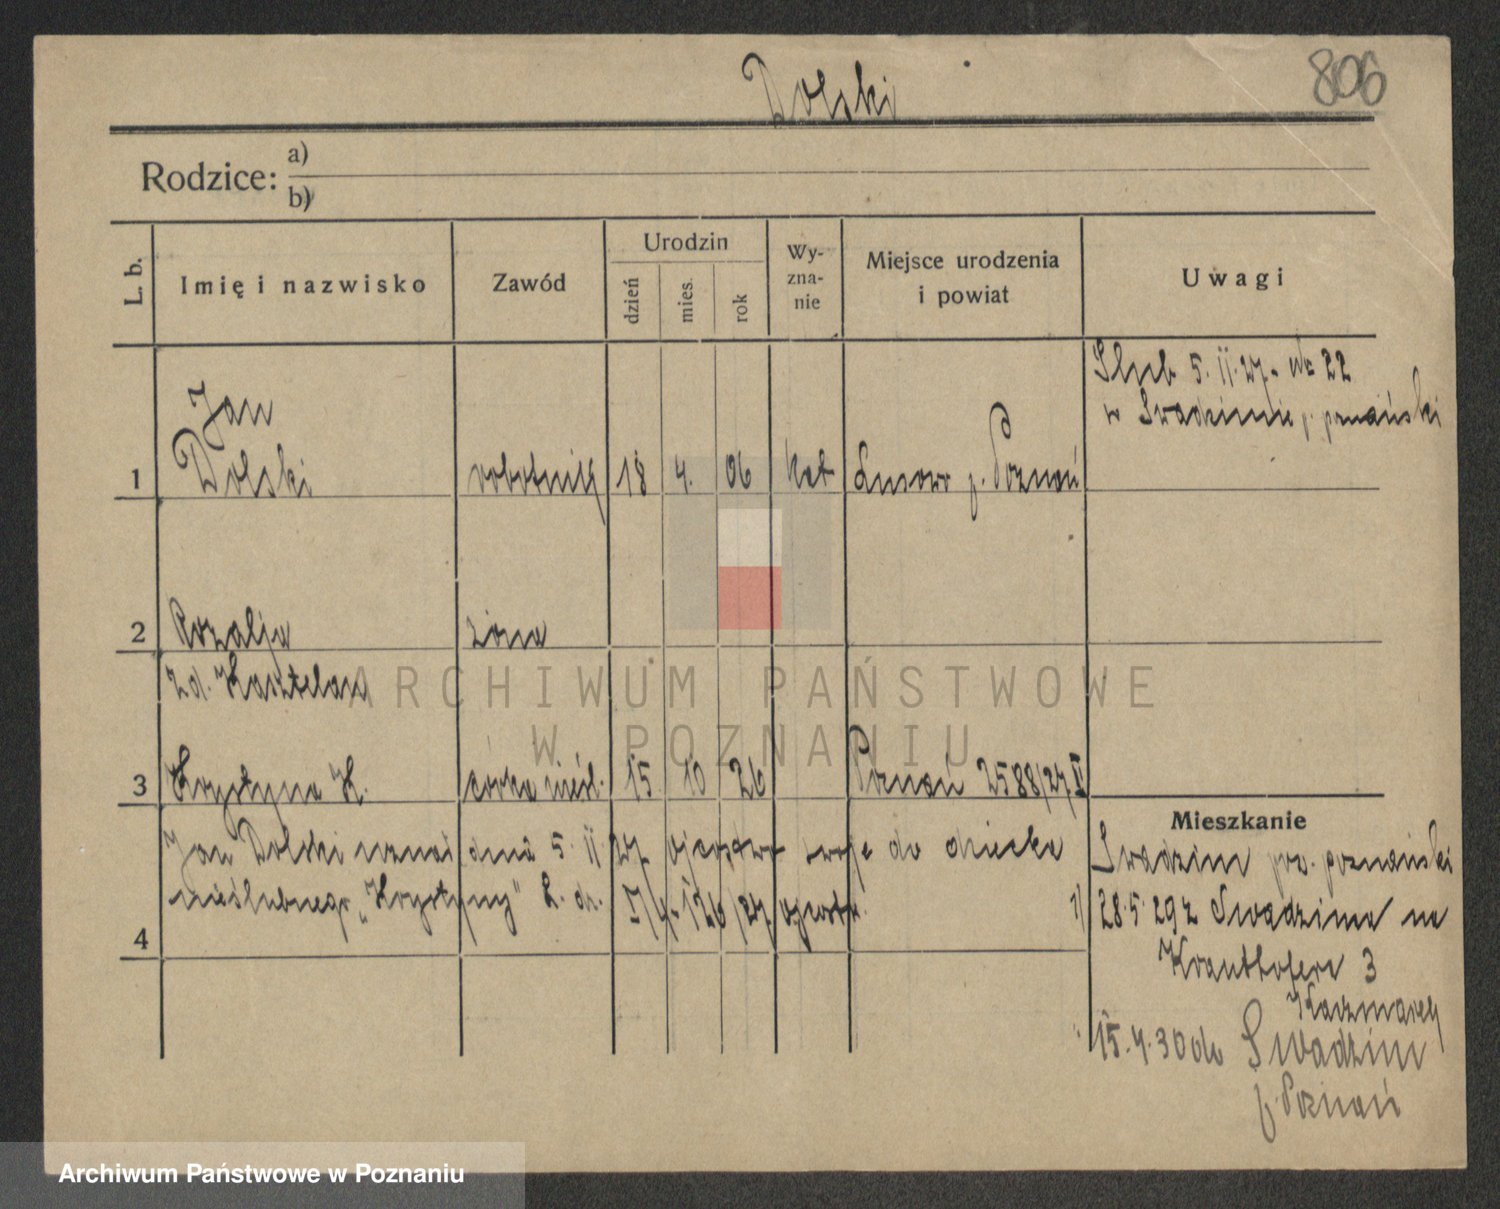 806
Dolski
Rodzice:
a)
b)
L. b.
Imię i nazwisko
Zawód
Urodzin
dzień
mies.
rok
Wy-
zna-
nie
Miejsce urodzenia
i powiat
Uwagi
Ślub 5. II. 27. Nr 22
w Swadzimie p. poznański
1
Jan
Dolski
robotnik
18
4.
06
kat
p. Poznań
2
Rozalja
żona
z d. Kasztelan
3
Krystyna K.
córka nieśl.
15
10
26
Poznań 2588/27 II
Jan Dolski uznał dnia 5. II 27 ojcostwo swoje do dziecka
nieślubnego „Krystyny” K.
4
Mieszkanie
Swadzim pow. poznański
1) 28.5.29 z Swadzima na
Kranthofera 3
Kaczmarek
15.4.30 do Swadzim
p. Poznań
ARCHIWUM PAŃSTWOWE
W POZNANIU
Archiwum Państwowe w Poznaniu